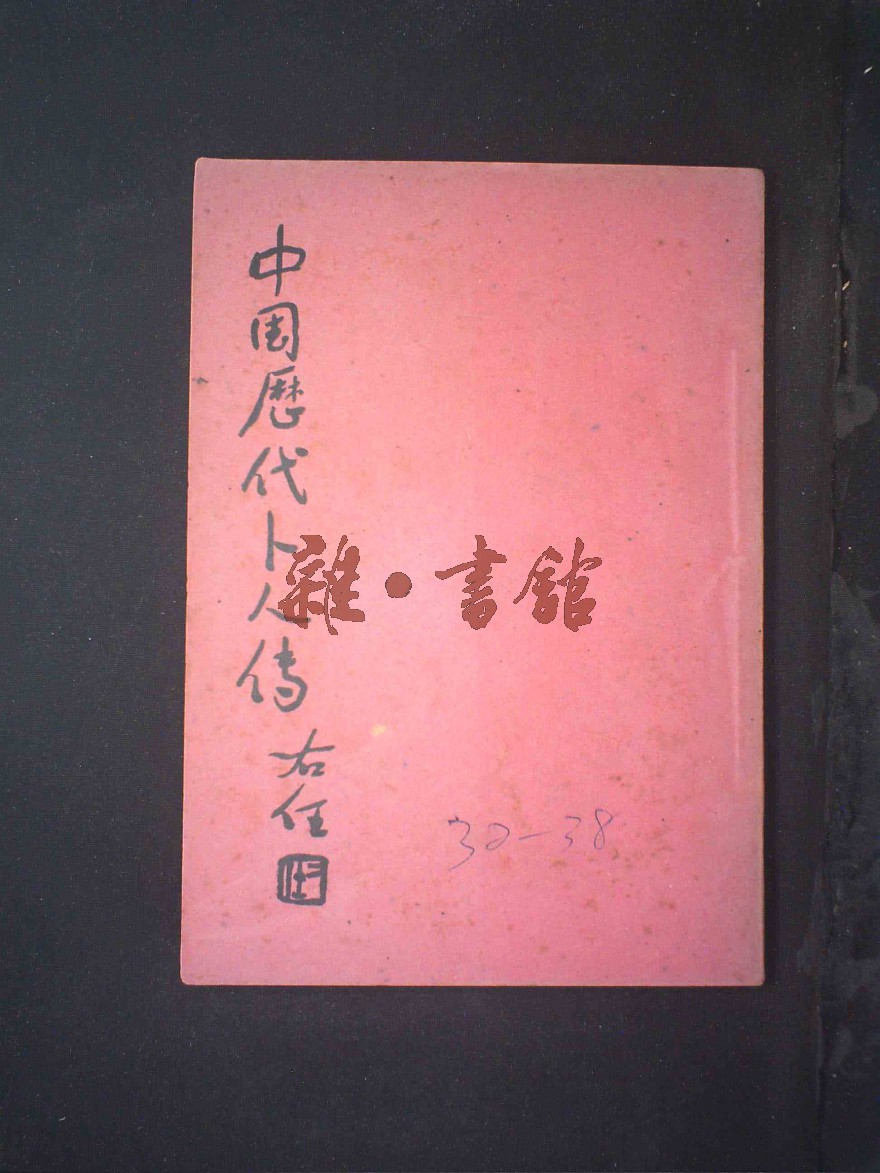 中国歷代卜人傳
右任
雜·書館
30-38